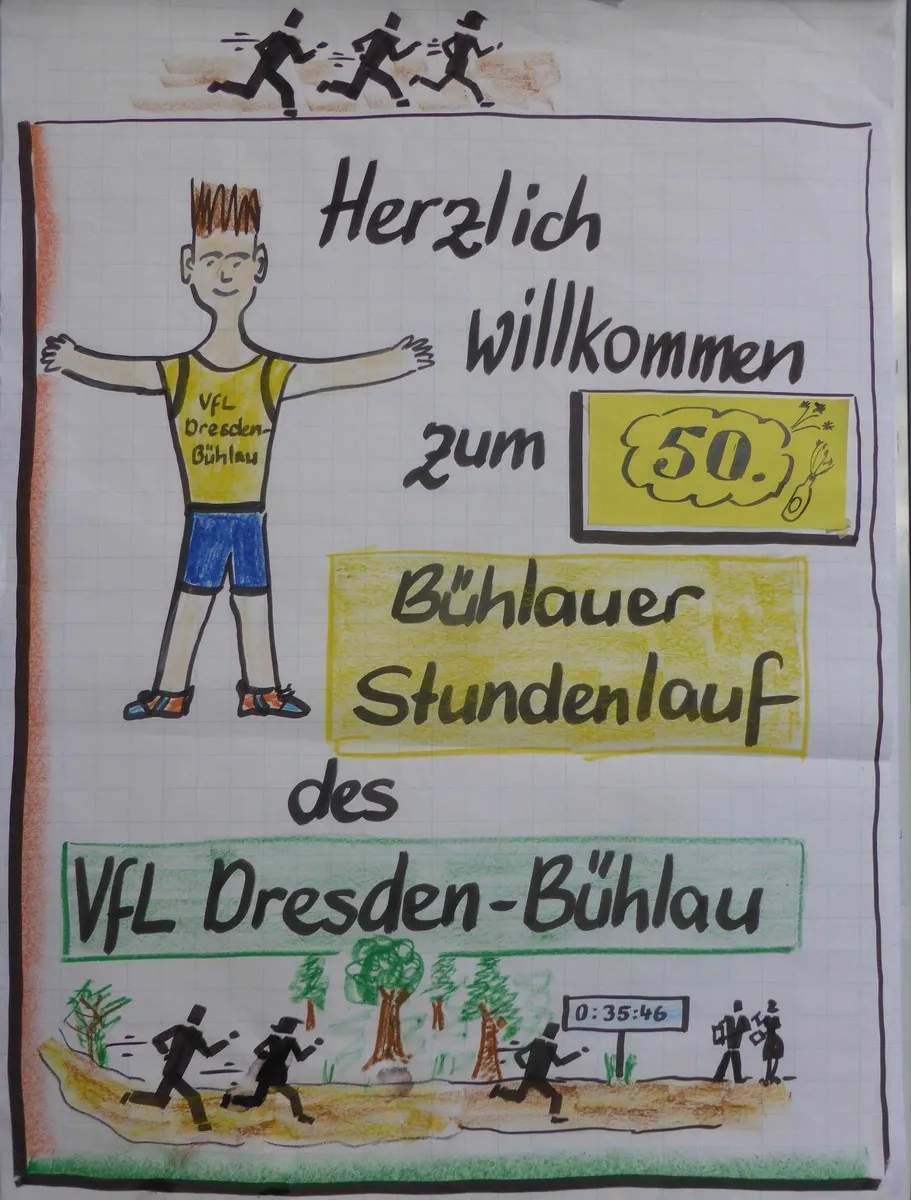 Herzlich
willkommen
zum 50.
VfL
Dresden-
Bühlau
Bühlauer
Stundenlauf
des
VfL Dresden-Bühlau
0:35:46